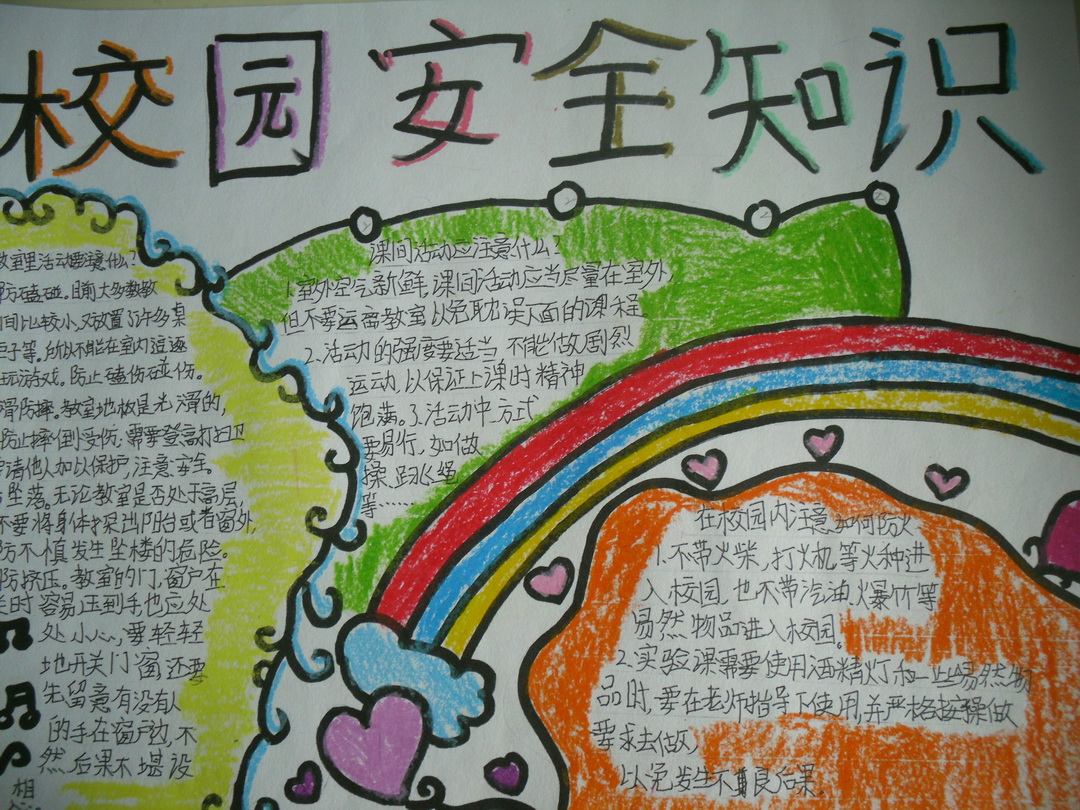 校园安全知识
教室里活动要注意什么?
防磕碰。目前大多数教
间比较小,又放置了许多桌
子等。所以不能在室内追逐
玩游戏。防止磕伤碰伤。
滑防摔。教室地板是光滑的,
防止摔倒受伤;需要登高打扫卫
请他人加以保护,注意安全。
坠落。无论教室是否处于高层
不要将身体探出阳台或者窗外,
防不慎发生坠楼的危险。
防挤压。教室的门、窗户在
时容易压到手,也应处
处小心,要轻轻
地开关门窗,还要
先留意有没有人
的手在窗户边,不
然后果不堪设
相
课间活动应注意什么?
1.室外空气新鲜,课间活动应当尽量在室外,
但不要远离教室,以免耽误下面的课程。
2.活动的强度要适当,不能做剧烈
运动,以保证上课时精神
饱满。3.活动中方式
要易行,如做
操,跳飞绳
等……
在校园内注意如何防火
1.不带火柴,打火机等火种进
入校园,也不带汽油,火暴竹等
易然物品进入校园。
2.实验课需要使用酒精灯和一些易然物
品时,要在老师指导下使用,并严格按操做
要求去做,
以免发生不良后果.